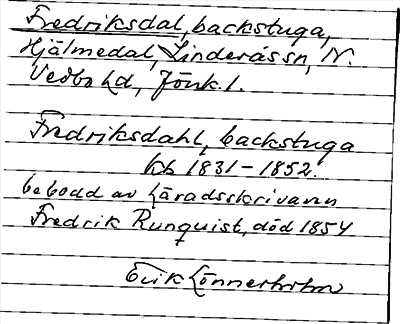 Fredriksdal, backstuga,
Hjälmedal, Linderås sn, N.
Vedbo hd, Jönk. l.
Fredriksdahl, backstuga
kb 1831-1852.
bebodd av häradsskrivaren
Fredrik Runquist, död 1854
Erik Lönnerholm